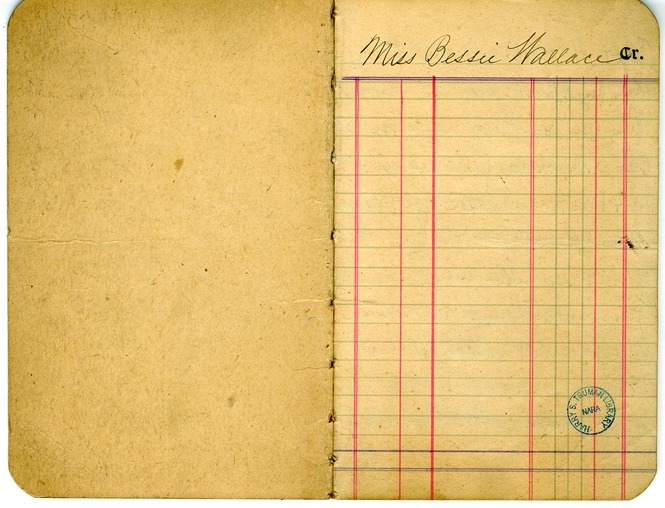 Miss Bessie Wallace Cr.
HARRY S. TRUMAN LIBRARY
NARA